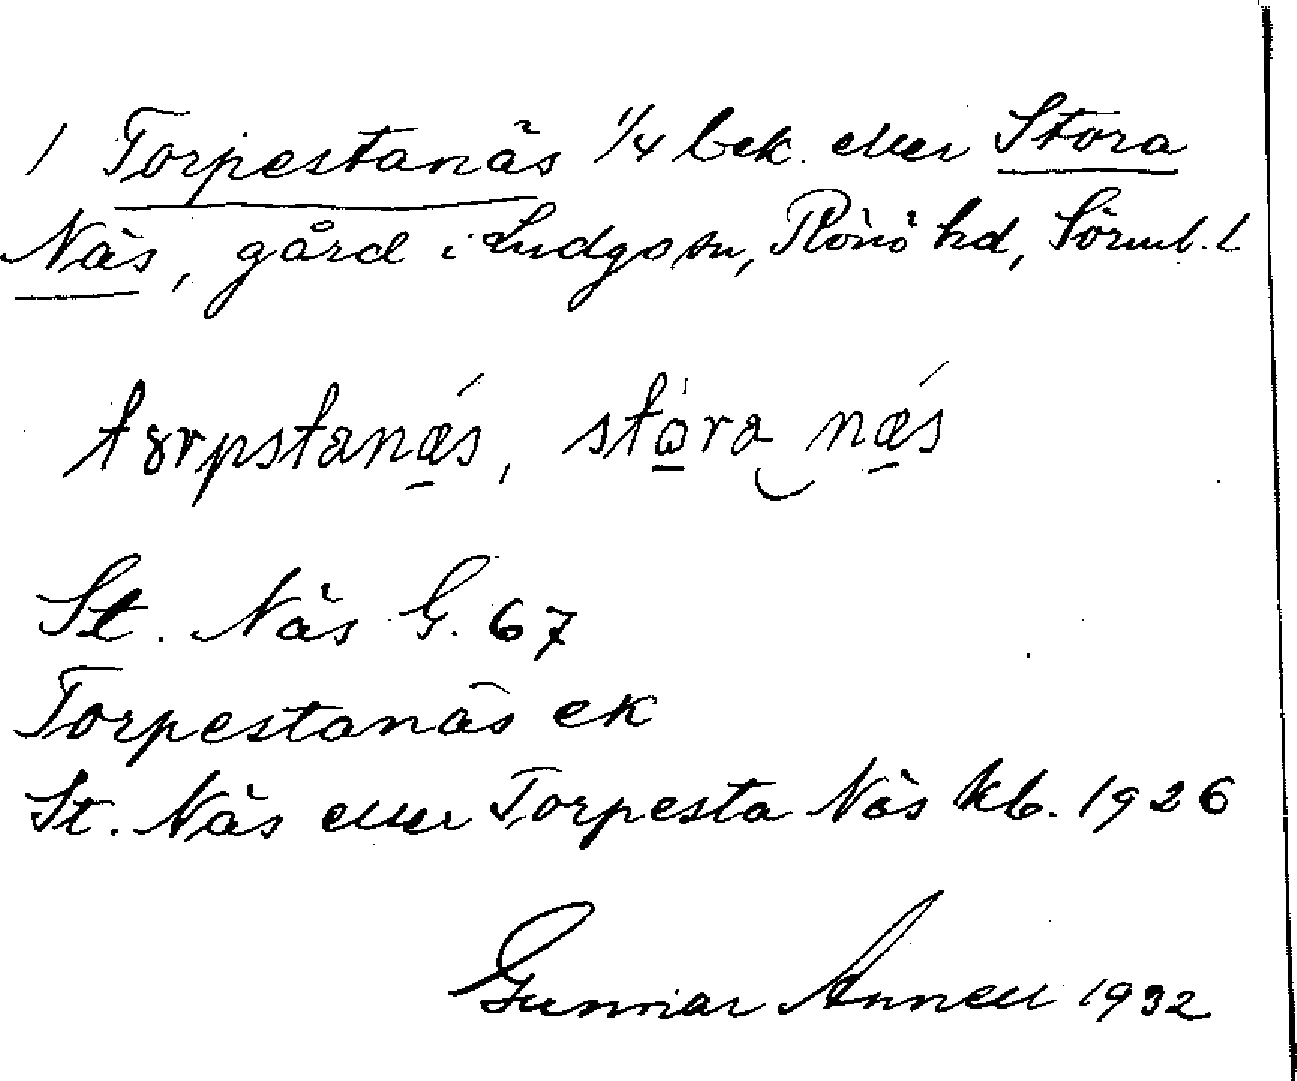 1 Torpestanäs 1/4 bek. eller Stora
Näs, gård i Ludgo sn, Rönö hd, Sörml. l
tɤrpstanǽs, stɷ̀ra nǽs
St. Näs G. 67
Torpestanäs ek
St. Näs eller Torpesta Näs kb. 1926
Gunnar Annell 1932